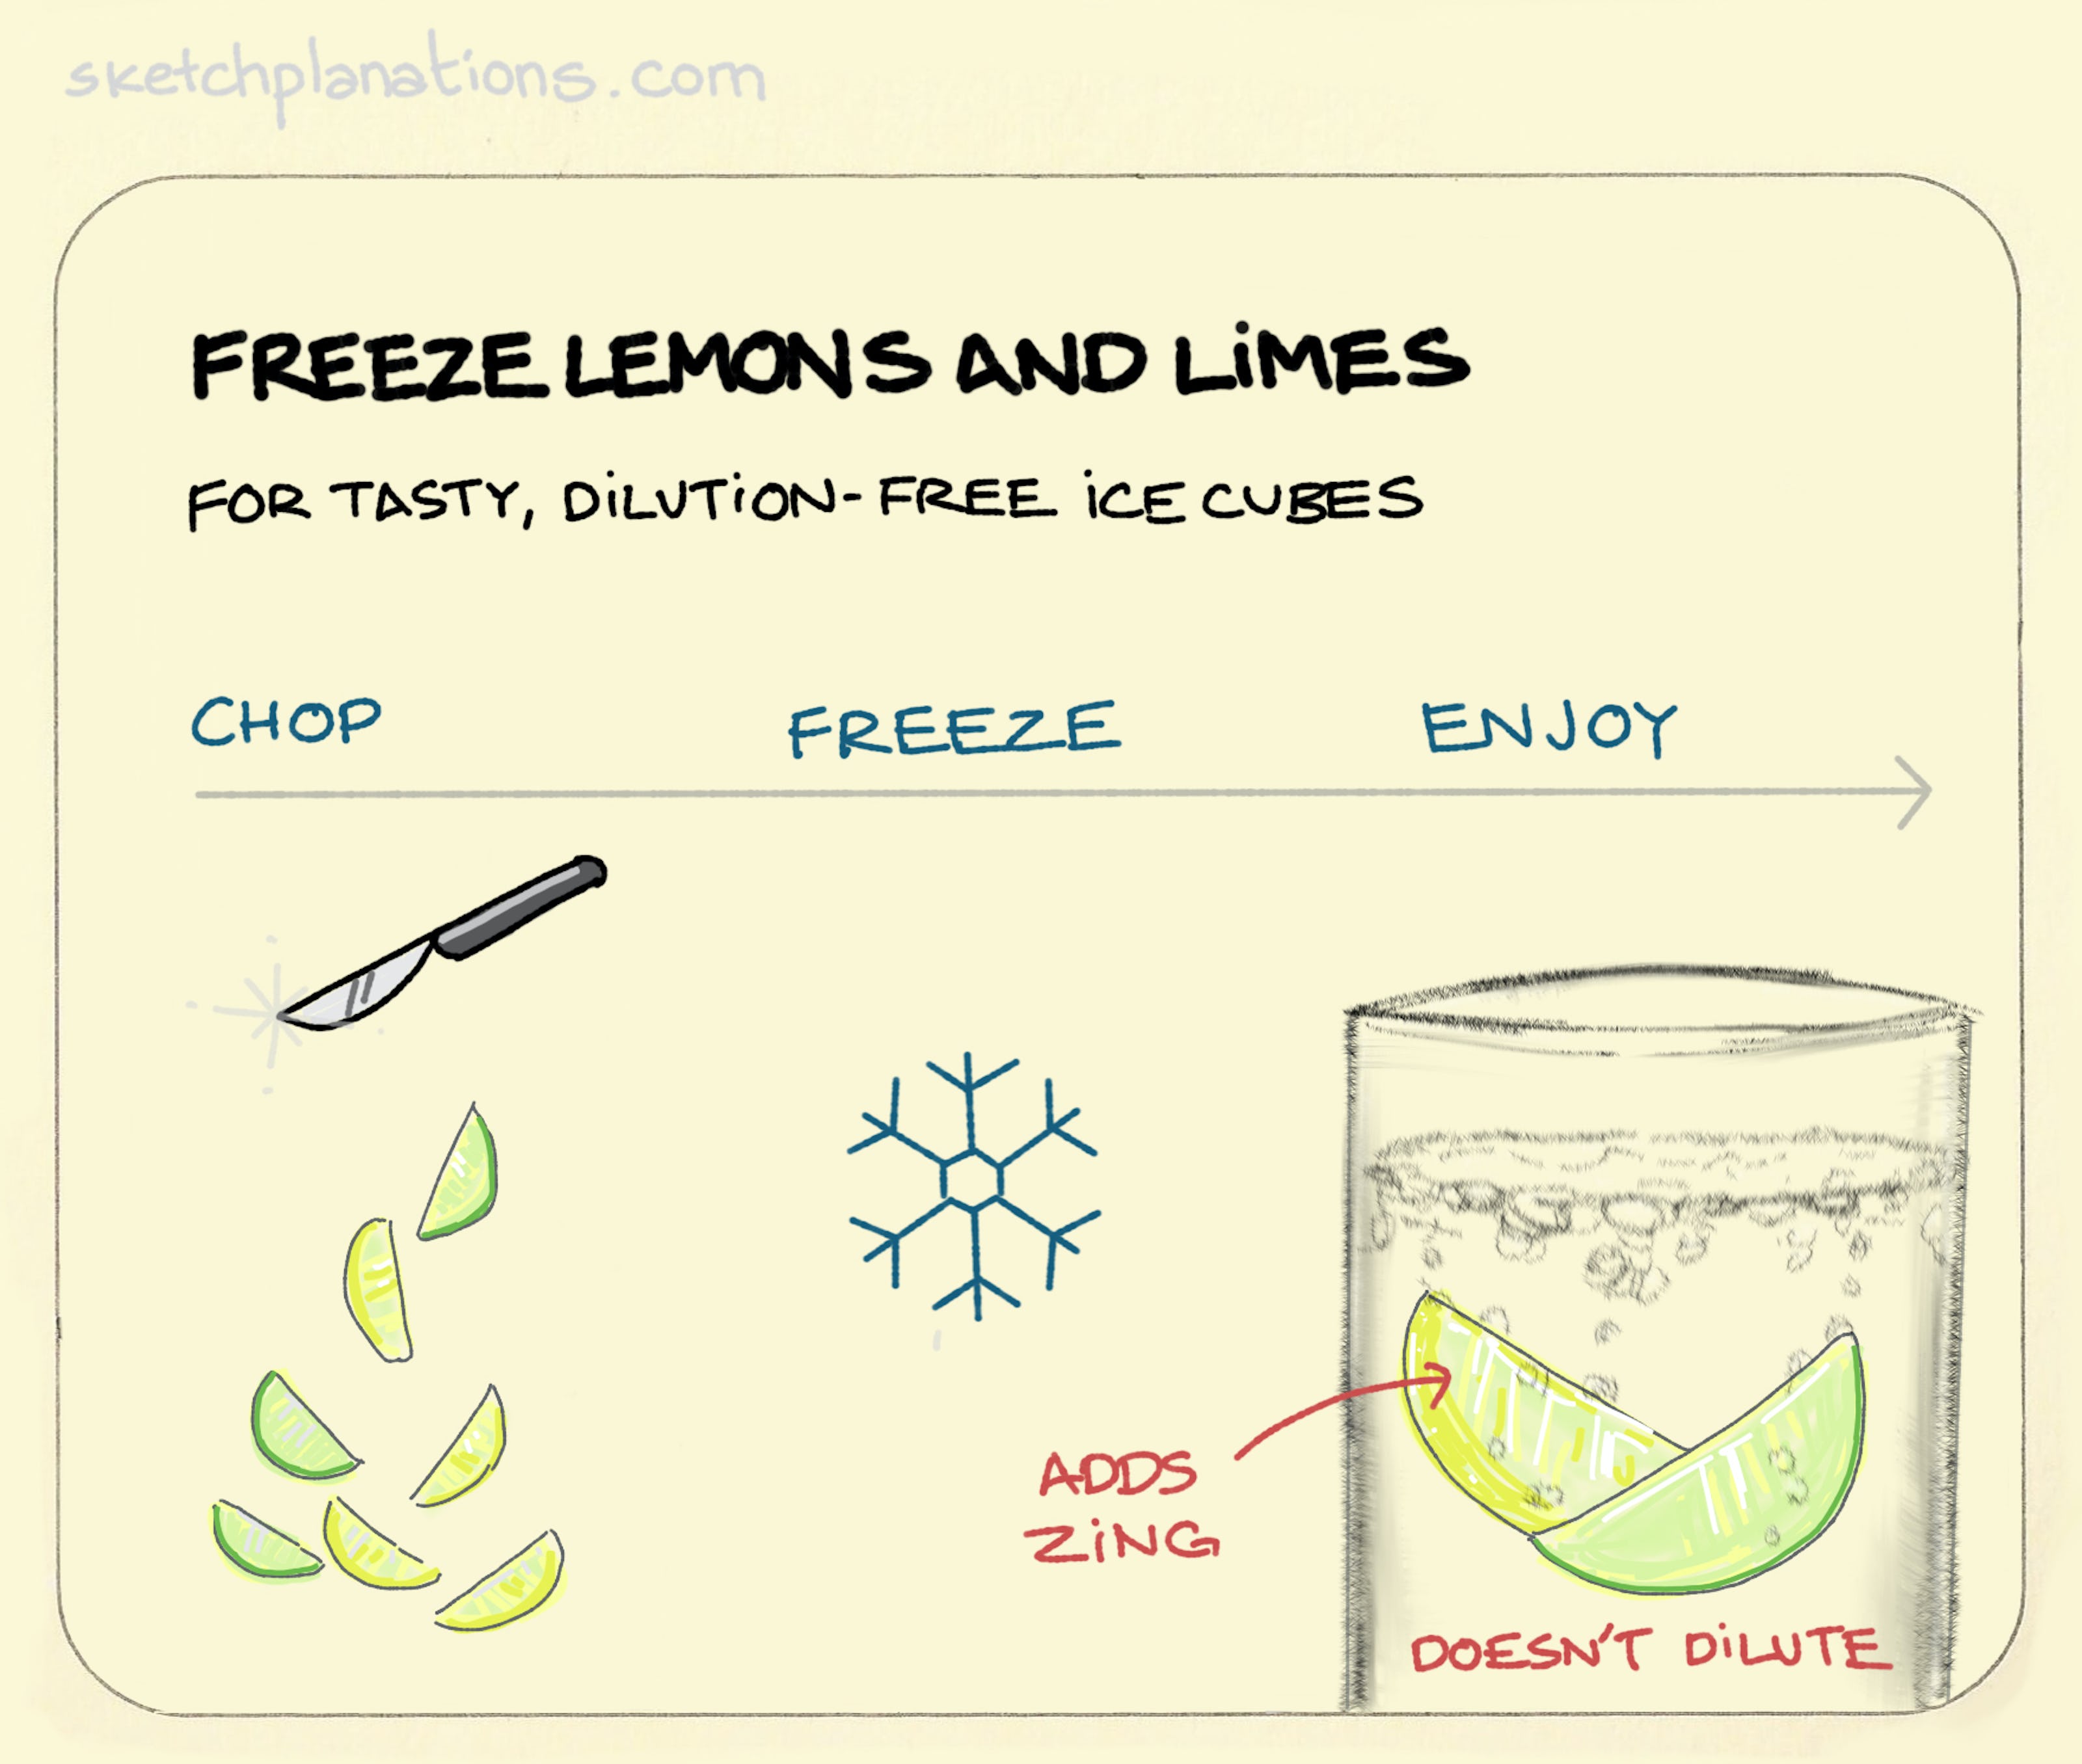 sketchplanations.com
FREEZE LEMONS AND LiMES
FOR TASTY, DiLUTiON-FREE iCE CUBES
CHOP
FREEZE
ENJOY
ADDS
ZiNG
DOESN'T DiLUTE